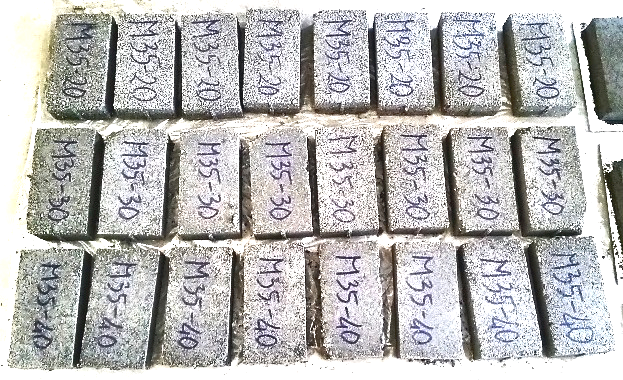 M35-20
M35-20
M35-20
M35-20
M35-20
M35-20
M35-20
M35-20
M35-30
M35-30
M35-30
M35-30
M35-30
M35-30
M35-30
M35-30
M35-40
M35-40
M35-40
M35-40
M35-40
M35-40
M35-40
M35-40